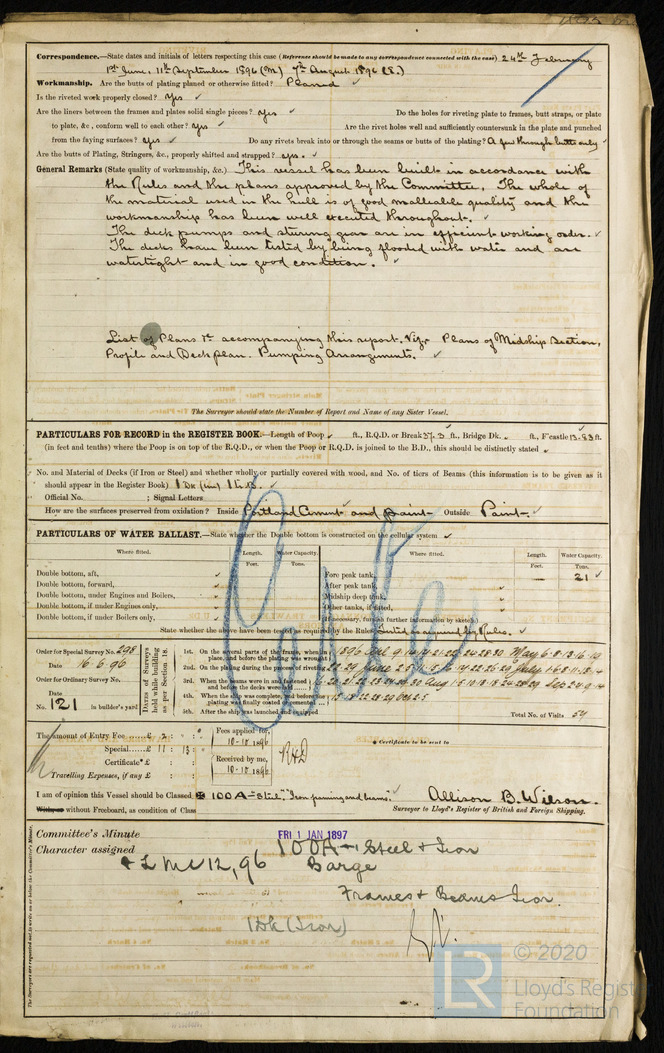 Correspondence.—State dates and initials of letters respecting this case (Reference should be made to any correspondence connected with the case) 24th February
1st June, 11th September 1896 (M) 7th August 1896 (S.)
Workmanship. Are the butts of plating planed or otherwise fitted? Planed
Is the riveted work properly closed? Yes
Are the liners between the frames and plates solid single pieces? yes Do the holes for riveting plate to frames, butt straps, or plate
to plate, &c., conform well to each other? yes Are the rivet holes well and sufficiently countersunk in the plate and punched
from the faying surfaces? yes Do any rivets break into or through the seams or butts of the plating? A few through butts only
Are the butts of Plating, Stringers, &c., properly shifted and strapped? yes.
General Remarks (State quality of workmanship, &c.) This vessel has been built in accordance with
the Rules and the plans approved by the Committee. The whole of
the material used in the hull is of good malleable quality and the
workmanship has been well executed throughout.
The deck pumps and steering gear are in efficient working order.
The decks have been tested by being flooded with water and are
watertight and in good condition.
List of Plans &c accompanying this report. Viz. Plans of Midship Section,
Profile and Deck plan. Pumping Arrangements.
The Surveyor should state the Number of Report and Name of any Sister Vessel.
PARTICULARS FOR RECORD in the REGISTER BOOK.—Length of Poop ft., R.Q.D. or Break 37.3 ft., Bridge Dk. ft., F'castle 13.83 ft.
(in feet and tenths) where the Poop is on top of the R.Q.D., or when the Poop or R.Q.D. is joined to the B.D., this should be distinctly stated
No. and Material of Decks (if Iron or Steel) and whether wholly or partially covered with wood, and No. of tiers of Beams (this information is to be given as it
should appear in the Register Book) 1 Dk (Iron)
Official No. ; Signal Letters
How are the surfaces preserved from oxidation? Inside Portland Cement and Paint Outside Paint.
PARTICULARS OF WATER BALLAST.—State whether the Double bottom is constructed on the cellular system
Where fitted. Length. Water Capacity. Where fitted. Length. Water Capacity.
Feet. Tons. Feet. Tons.
Double bottom, aft, Fore peak tank, — 21
Double bottom, forward, After peak tank,
Double bottom, under Engines and Boilers, Midship deep tank,
Double bottom, if under Engines only, Other tanks, if fitted,
Double bottom, if under Boilers only, (If necessary, furnish further information by sketch.)
State whether the above have been tested as required by the Rules Tested as required by Rules.
Order for Special Survey No. 298
Date 16.6.96
Order for Ordinary Survey No.
Date
No. 121 in builder's yard
Dates of Surveys held while building as per Section 18.
1st. On the several parts of the frame, when in place, and before the plating was wrought
2nd. On the plating during the process of riveting
3rd. When the beams were in and fastened and before the decks were laid
4th. When the ship was complete, and before the plating was finally coated or cemented
5th. After the ship was launched and equipped
Total No. of Visits 54
The amount of Entry Fee £ 2 : : Fees applied for,
Special £ 11 : 13 : 10.10.1896
Certificate £ : : Received by me,
Travelling Expenses, if any £ : : 10.10.1896
Certificate to be sent to
I am of opinion this Vessel should be Classed 100A—Steel, "Iron framing and beams".
without Freeboard, as condition of Class
Allison B. Wilson.
Surveyor to Lloyd's Register of British and Foreign Shipping.
Committee's Minute FRI 1 JAN 1897
Character assigned 100A+1 Steel & Iron
+ LMC 12,96 Barge
Frames & Beams Iron.
1Dk (Iron)
The Surveyors are requested not to write on or below the Committee's Minute.
LR
© 2020
Lloyd's Register
Foundation